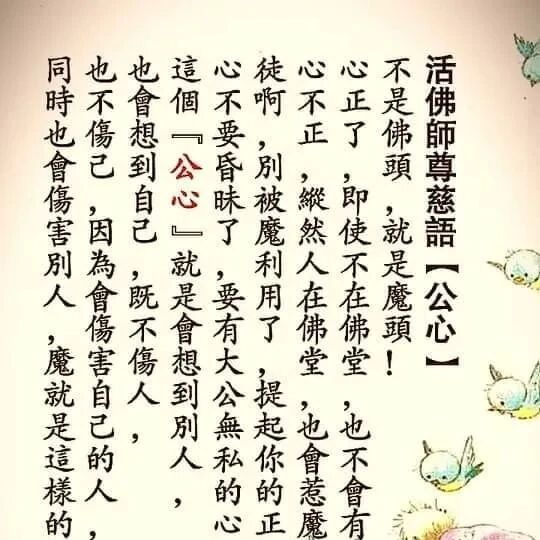 活佛師尊慈語【公心】
不是佛頭,就是魔頭!
心正了,即使不在佛堂,也不會有
心不正,縱然人在佛堂,也會惹魔
徒啊,別被魔利用了,提起你的正
心不要昏昧了,要有大公無私的心
這個『公心』就是會想到別人,
也會想到自己,既不傷人,
也不傷己,因為會傷害自己的人,
同時也會傷害別人,魔就是這樣的